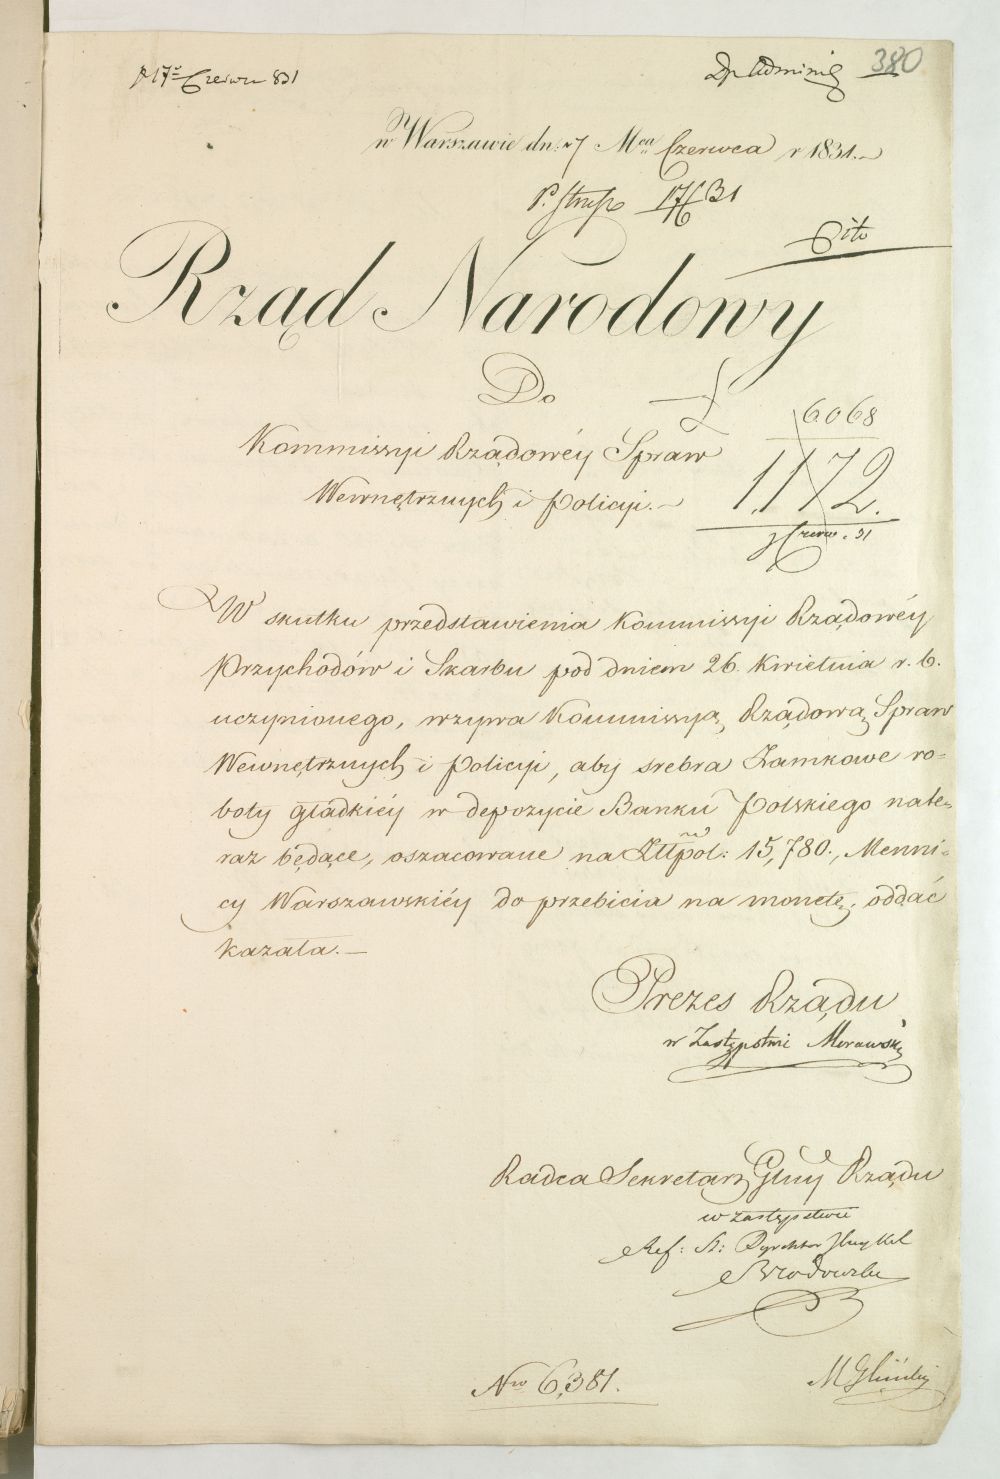 17 Czerwca 831
380
w Warszawie dn: 7 Mca Czerwca r 1831.
17/6 31
Cito
Rząd Narodowy
Do
6068
Kommissyi Rządowéy Spraw
1172.
Wewnętrznych i Policyi.
Czerw. 31
W skutku przedstawienia Kommissyi Rządowéy
Przychodów i Skarbu pod dniem 26. Kwietnia r. b.
uczynionego, wzywa Kommissyą Rządową Spraw
Wewnętrznych i Policyi, aby srebra Zamkowe ro-
boty gładkiéy w depozycie Banku Polskiego nate-
raz będące, oszacowane na Złłpol: 15,780., Menni-
cy Warszawskiéy do przebicia na monetę, oddać
kazała.
Prezes Rządu
w Zastępstwie Morawski
Radca Sekretarz Glny Rządu
w zastępstwie
Ref: St: Dyrektor
Brodowski
No 6,381.
M Gliński